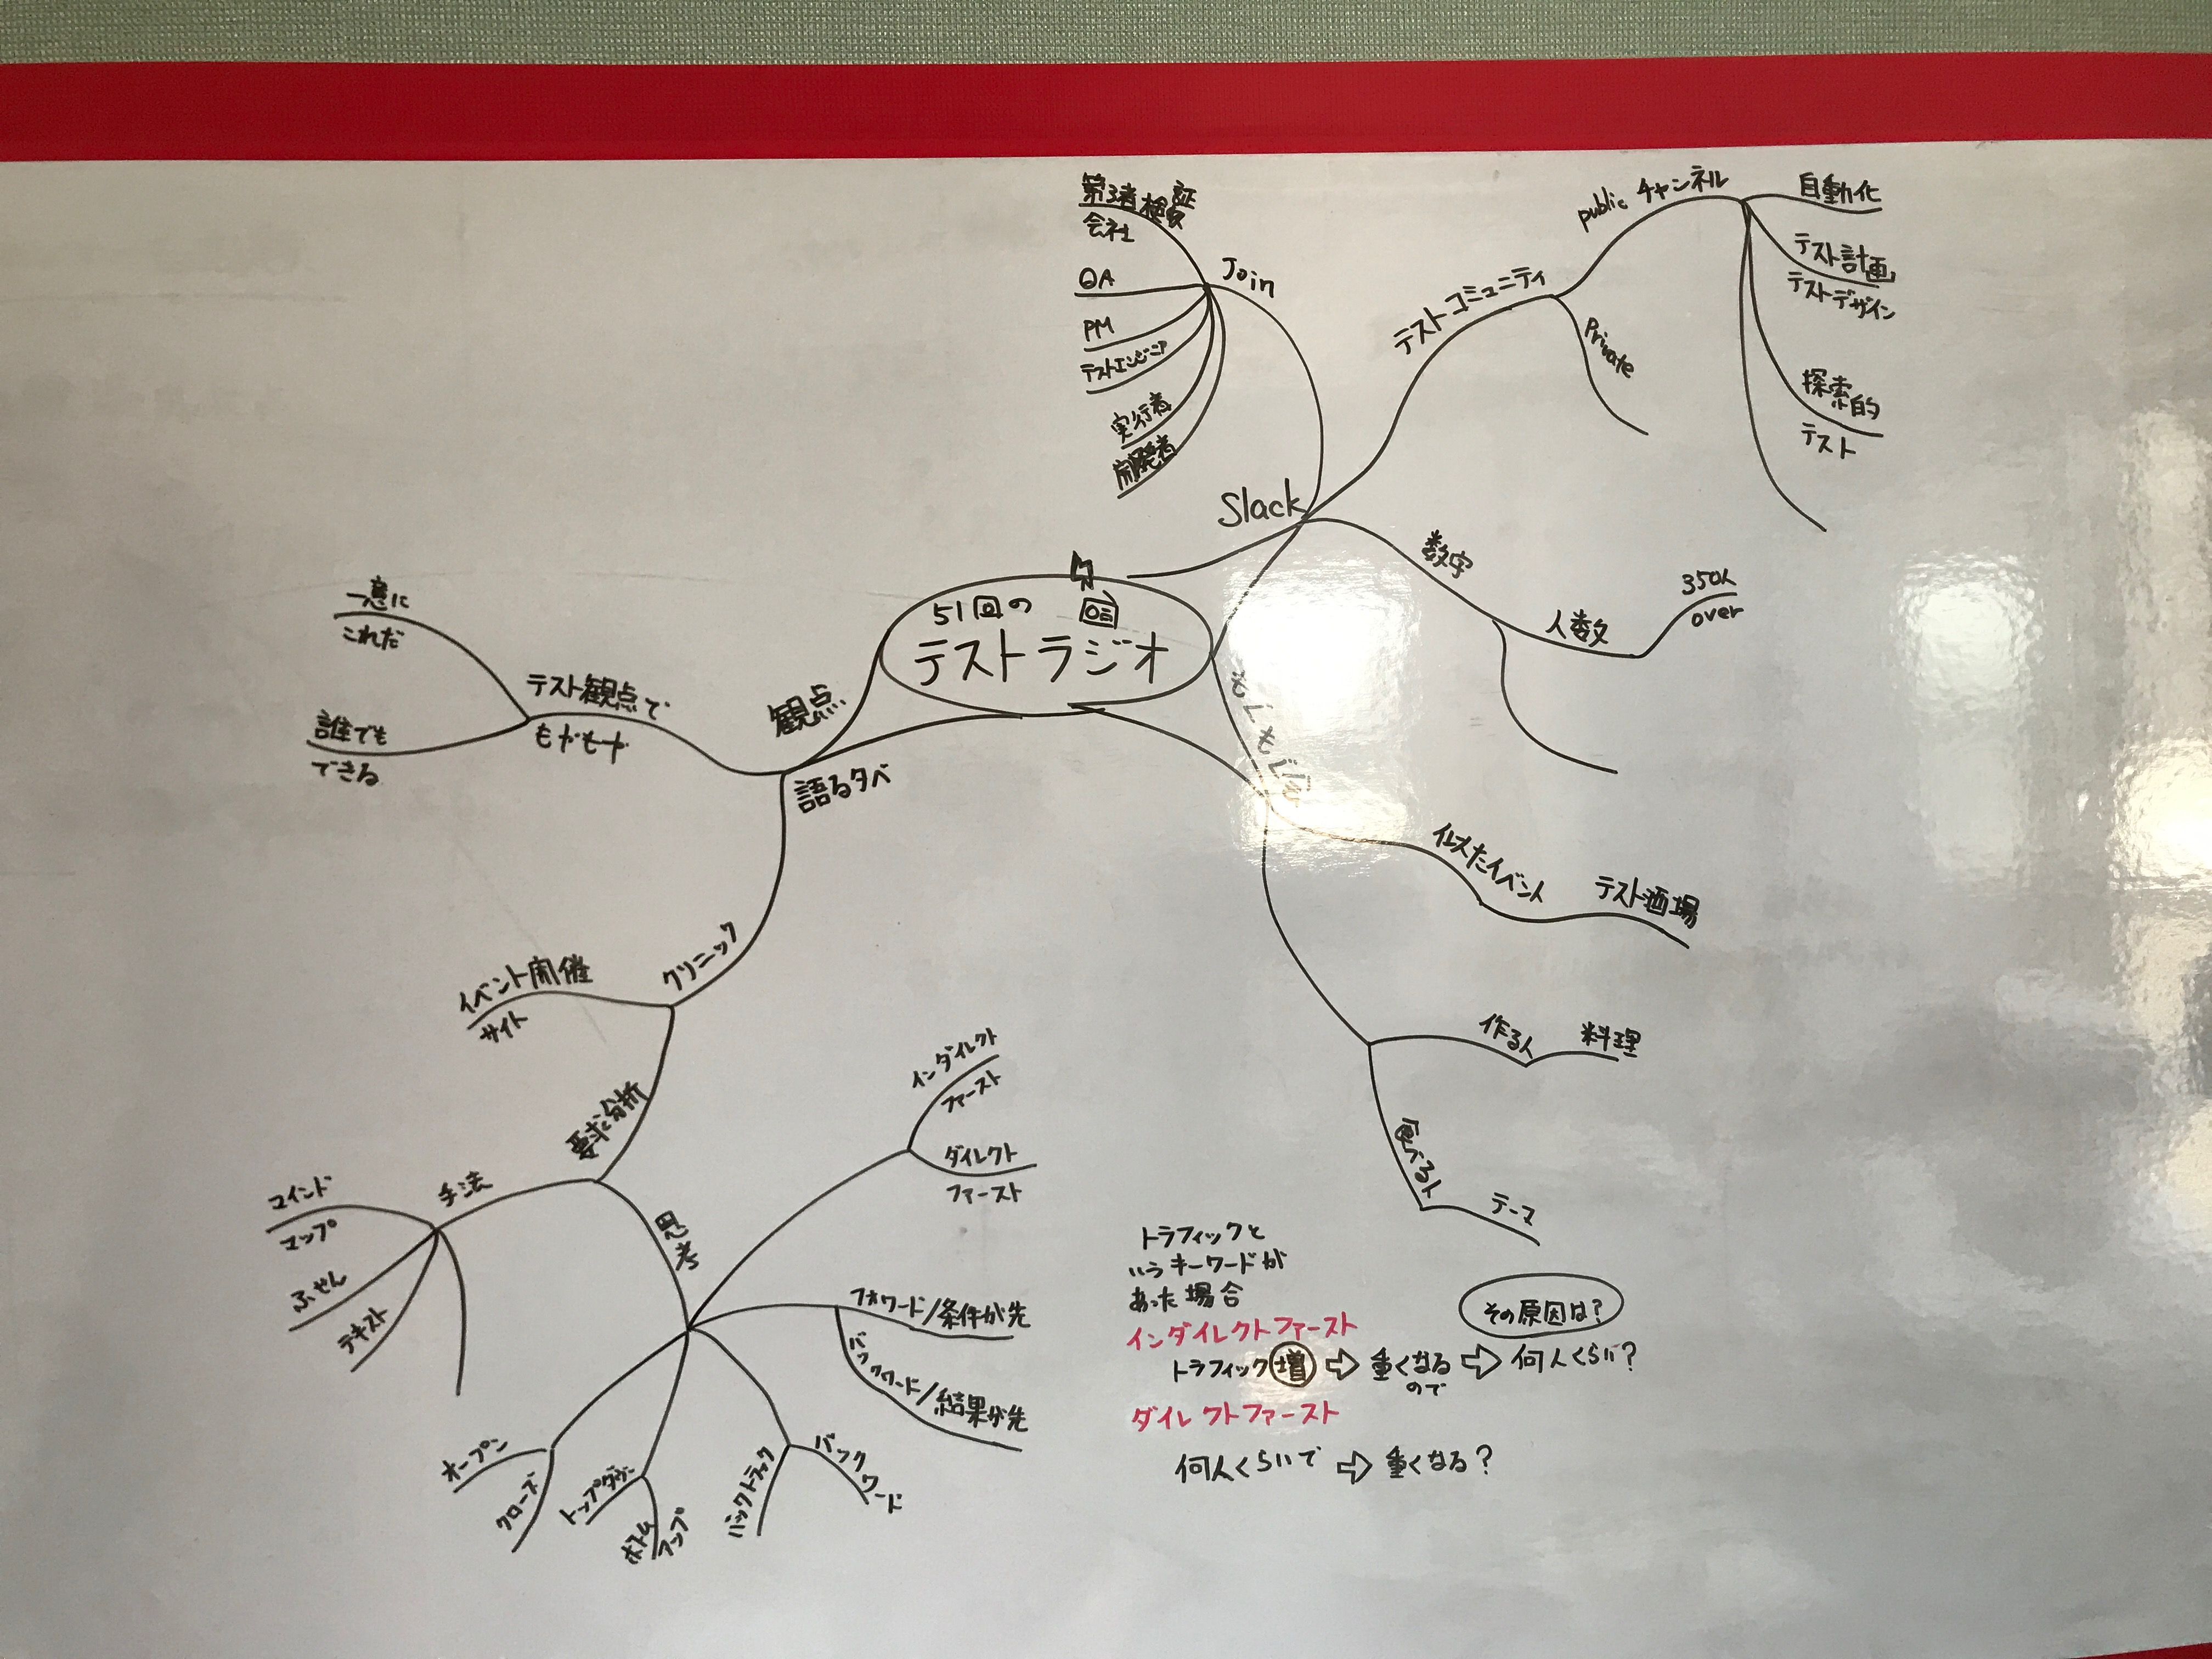 51回の
テストラジオ
Slack
Join
第3者検証
会社
QA
PM
テストエンジニア
実行者
開発者
テストコミュニティ
publicチャンネル
自動化
テスト計画
テストデザイン
探索的
テスト
Private
数字
人数
350人
over
もくもく会
似たイベント
テスト酒場
作る人
料理
食べる人
テーマ
観点
語る夕べ
テスト観点で
もやもや
急に
これだ
誰でも
できる
クリニック
イベント開催
サイト
要求分析
手法
マインド
マップ
ふせん
テキスト
思考
インダイレクト
ファースト
ダイレクト
ファースト
フォワード/条件が先
バックワード/結果が先
バックワード
バックトラック
トップダウン
ボトム
アップ
オープン
クローズ
トラフィックと
いうキーワードが
あった場合
インダイレクトファースト
その原因は?
トラフィック増⇨重くなる⇨何人くらい?
ので
ダイレクトファースト
何人くらいで⇨重くなる?